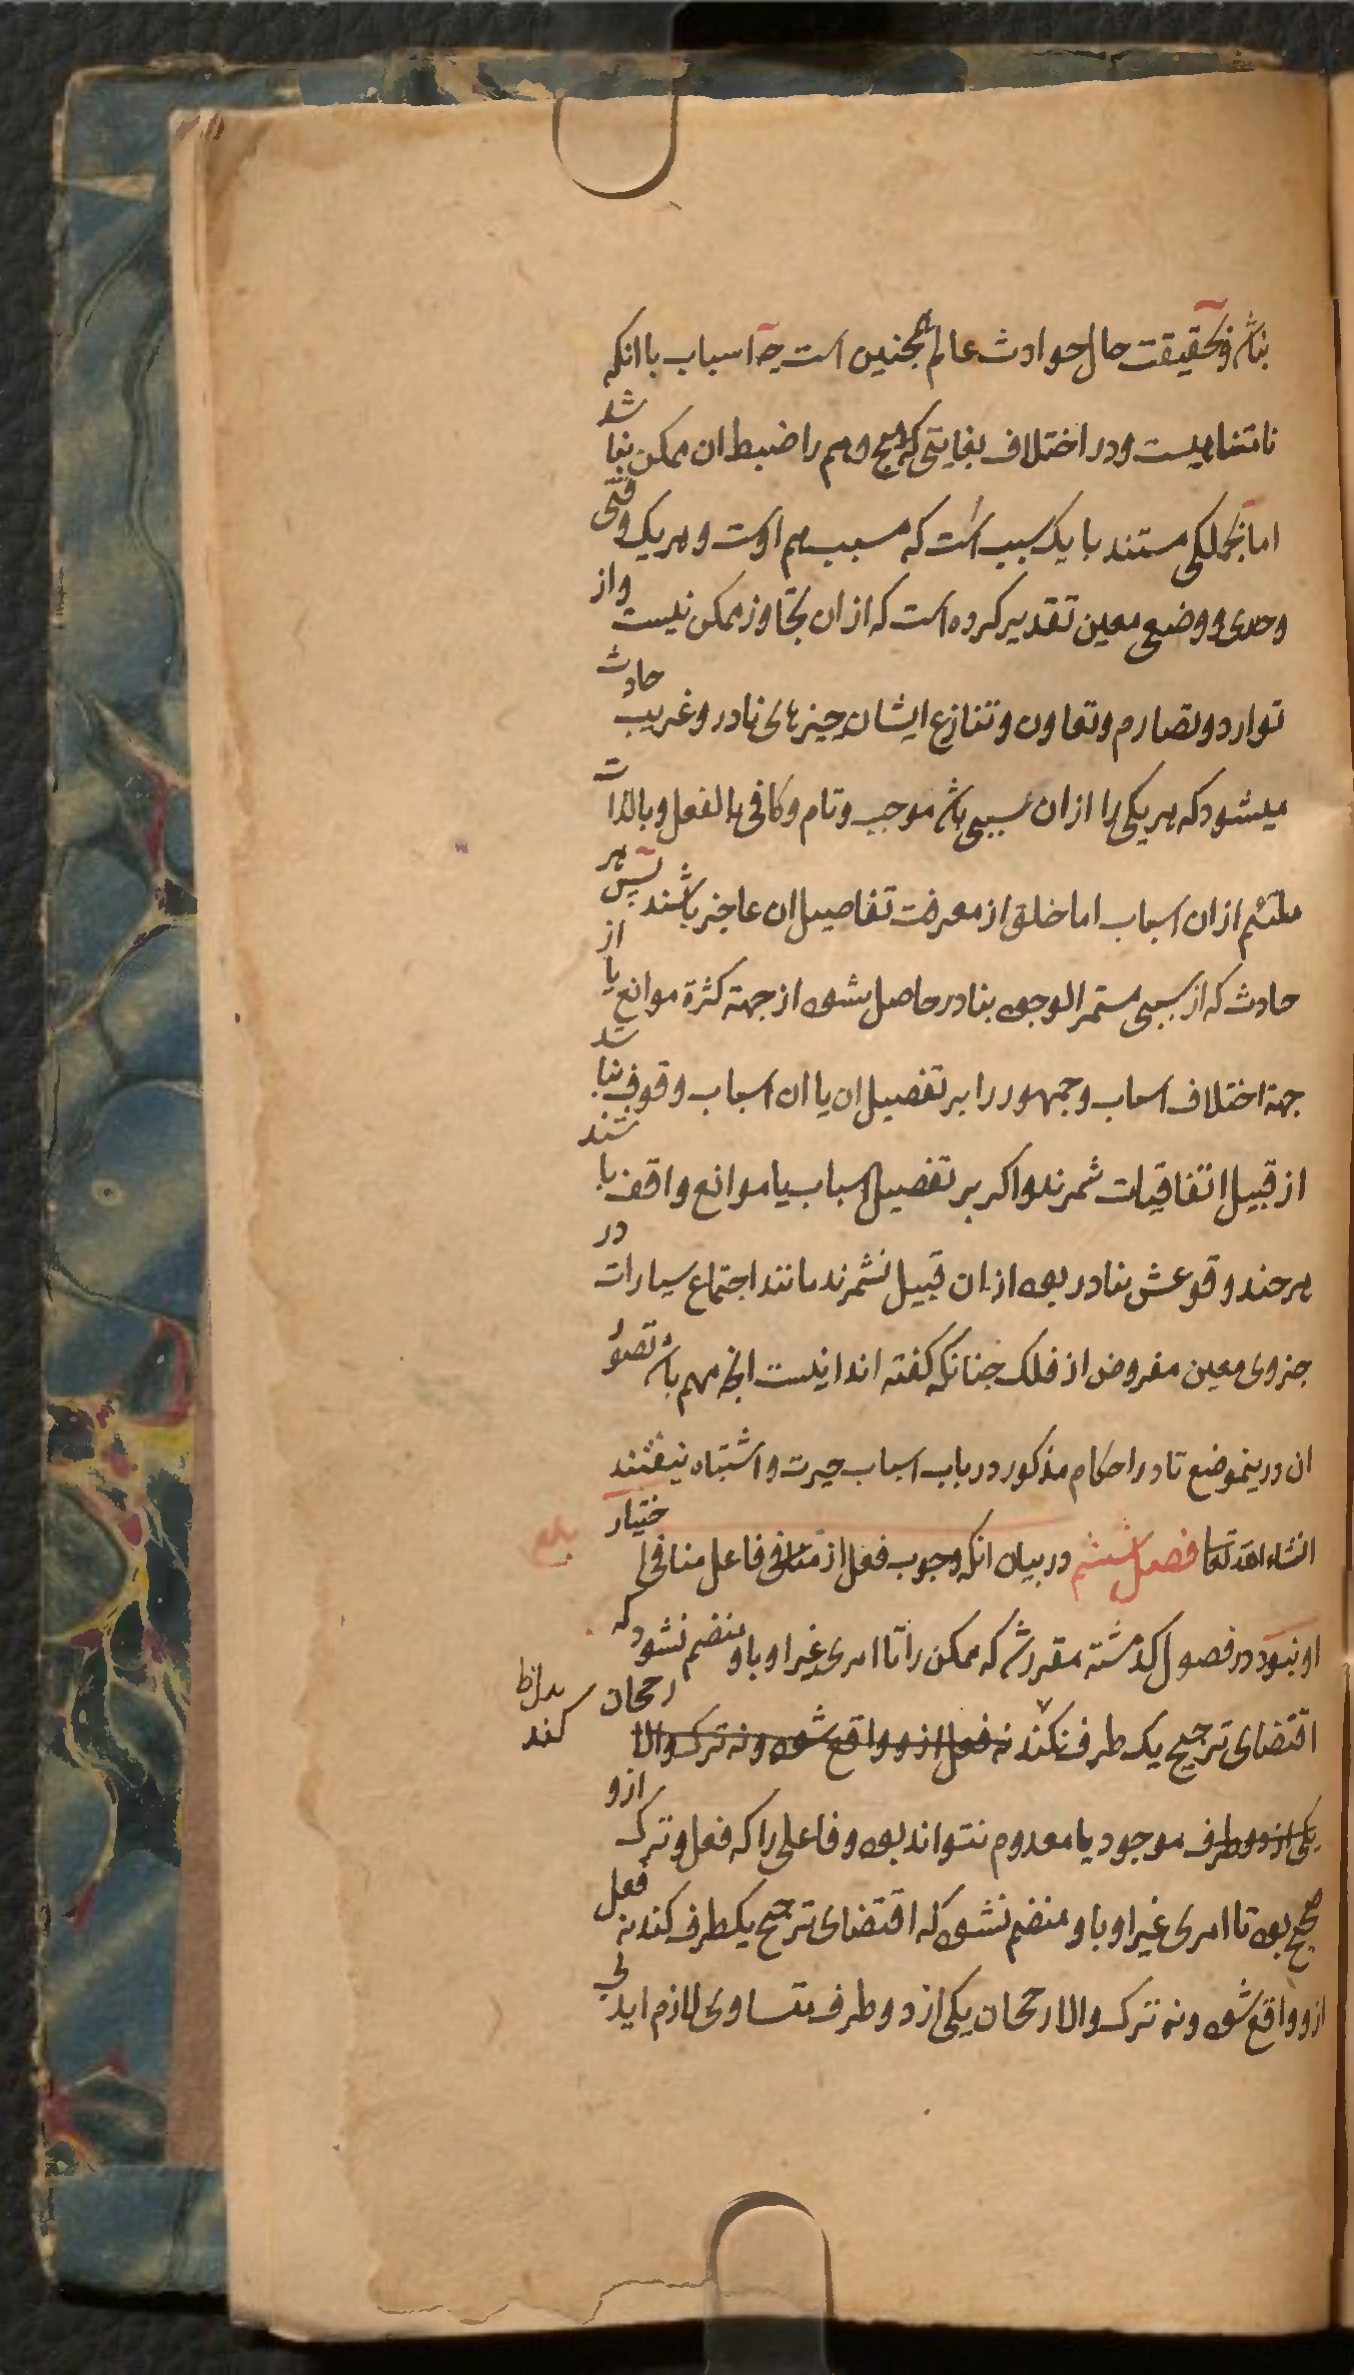 نباشد و بحقیقت حال حوادث عالم همچنین است چه اسباب با انکه
نامتناهیست و در اختلاف بغایتی که هیچ وهم را ضبط ان ممکن نباشد
اما بجملکی مستند با یک سبب است که مسبب هم اوست و هر یک وقتی
وحدی و وضعی معین تقدیر کرده است که از ان تجاوز ممکن نیست واز
توارد و تصادم و تعاون و تنازع ایشان چیزهای نادر و غریب حادث
میشود که هر یکی را از ان سببی باشد موجب و تام و کافی بالفعل و بالذات
ملتئم از ان اسباب اما خلق از معرفت تفاصیل ان عاجز باشند پس هر
حادث که از سببی مستمر الوجود بنادر حاصل شود از جهة کثرة موانع یا از
جهة اختلاف اسباب و جمهور را بر تفصیل ان یا ان اسباب وقوف نباشد
از قبیل اتفاقیات شمرند و اکر بر تفصیل اسباب یا موانع واقف باشند
هر چند وقوعش بنادر بود از ان قبیل نشمرند مانند اجتماع سیارات در
جزوی معین مفروض از فلک چنانکه کفته اند اینست انچه مهم باشد تصور
ان درینموضع تا در احکام مذکور در باب اسباب حیرت و اشتباه نیفتند
انشاء الله تعا فصل ششم در بیان انکه وجوب فعل از فاعل منافی اختیار
او نبود در فصول کذشته مقرر شد که ممکن را تا امری غیر او باو منضم نشود که
اقتضای ترجیح یک طرف نکند نه فعل ازو واقع شود و نه ترک والا رجحان
کند
یکی از دو طرف موجود یا معدوم نتواند بود و فاعلی را که فعل و ترک ازو
صحیح بود تا امری غیر او باو منضم نشود که اقتضای ترجیح یکطرف کند نه فعل
ازو واقع شود و نه ترک والا رجحان یکی از دو طرف متساوی لازم اید بی